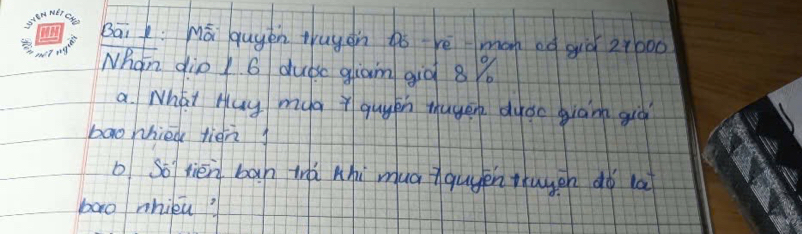 LUYỆN NÉT CHỮ
RÈN NẾT NGƯỜI
Bài 1: Mỗi quyển truyện Đô-rê-mon có giá 27000
Nhân dịp 1.6 được giảm giá 8%
a. Nhật Huy mua 7 quyển truyện được giảm giá
bao nhiêu tiền?
b) Số tiền bạn trả khi mua 7 quyển truyện đó là
bao nhiêu?